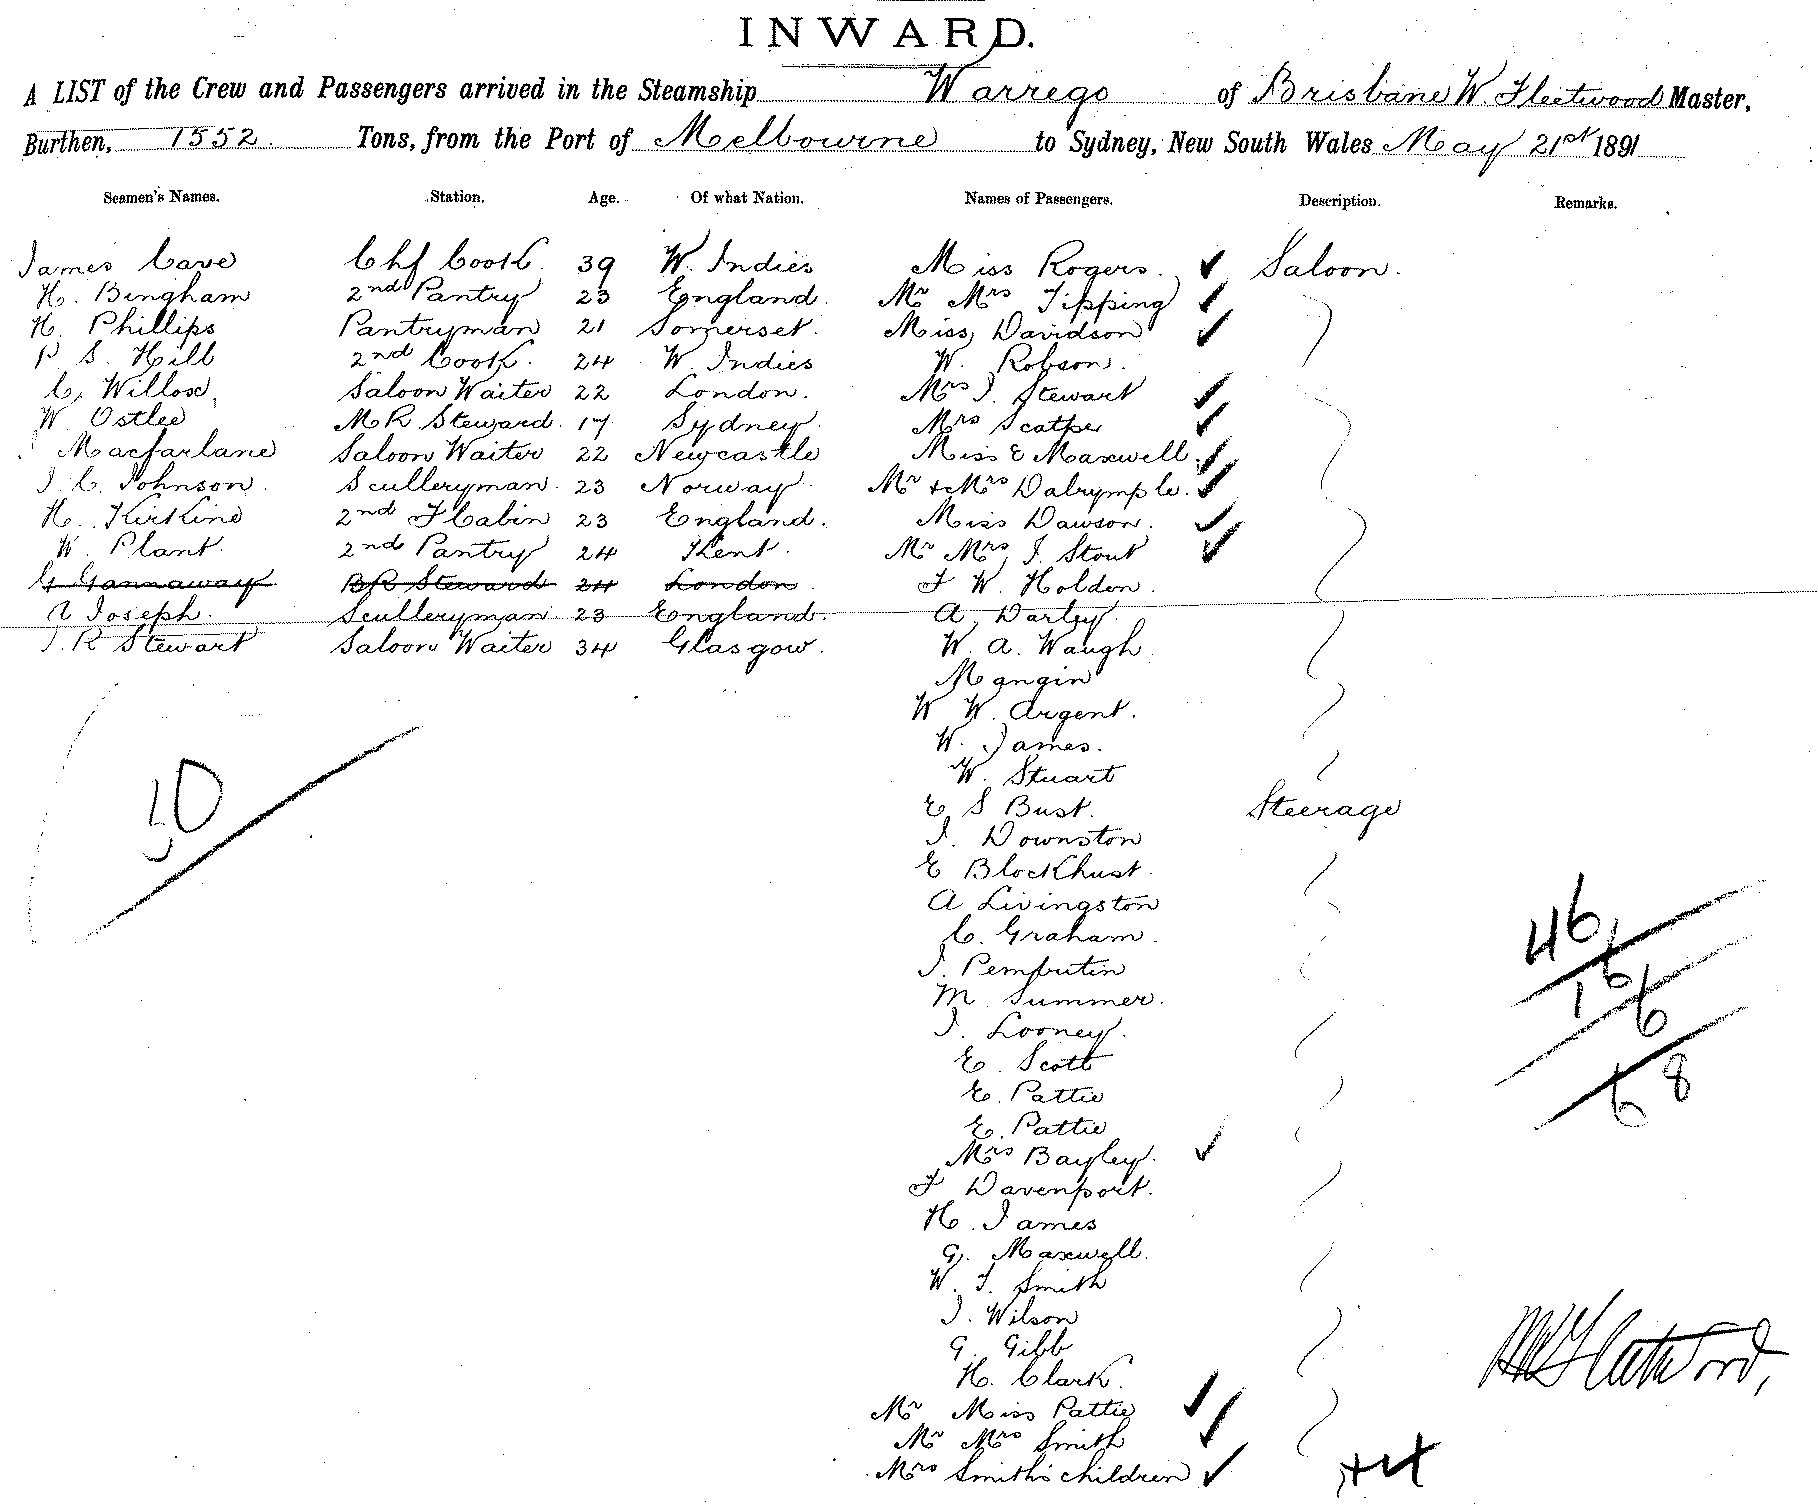 INWARD.
A LIST of the Crew and Passengers arrived in the Steamship Warrego of Brisbane W Fleetwood Master,
Burthen, 1552 Tons, from the Port of Melbourne to Sydney, New South Wales May 21st 1891
Seamen's Names. Station. Age. Of what Nation. Names of Passengers. Description. Remarks.
James Cave Chf Cook 39 W. Indies Miss Rogers. Saloon.
H. Bingham 2nd Pantry 23 England. Mr Mrs Tipping
H. Phillips Pantryman 21 Somerset. Miss Davidson
P S. Hill 2nd Cook. 24 W. Indies W. Robson.
C. Willox Saloon Waiter 22 London. Mrs J. Stewart
W. Ostlee M R Steward. 17 Sydney. Mrs
Macfarlane Saloon Waiter 22 Newcastle Miss E Maxwell.
J. C. Johnson. Sculleryman. 23 Norway. Mr + Mrs Dalrymple.
H. Kirkine 2nd F Cabin 23 England. Miss Dawson.
W. Plant. 2nd Pantry 24 Kent. Mr Mrs J. Stout
G Gannaway BR Steward 24 London F W. Holden.
A Joseph. Sculleryman 23 England. A. Darley.
J. R Stewart Saloon Waiter 34 Glasgow. W. A. Waugh
Mangin
W W. Argent.
W. James.
W. Stuart
E S Bust. Steerage
J. Downston
E Blockhust.
A Livingston
C. Graham.
J.
M. Summer.
J. Looney.
E. Scott
E. Pattie
E. Pattie
Mrs Bayley.
F Davenport.
H. James
G. Maxwell.
W. J. Smith
J. Wilson
G. Gibb
H. Clark.
Mr Miss Pattie
Mr Mrs Smith
Mrs Smith's children
46
16
6
68